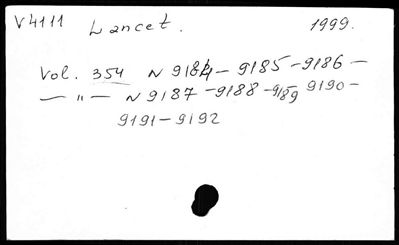 V4111 Lancet. 1999.
Vol. 354 N 9184 - 9185 - 9186 -
— " — N 9187 - 9188 - 9189 9190 -
9191 - 9192